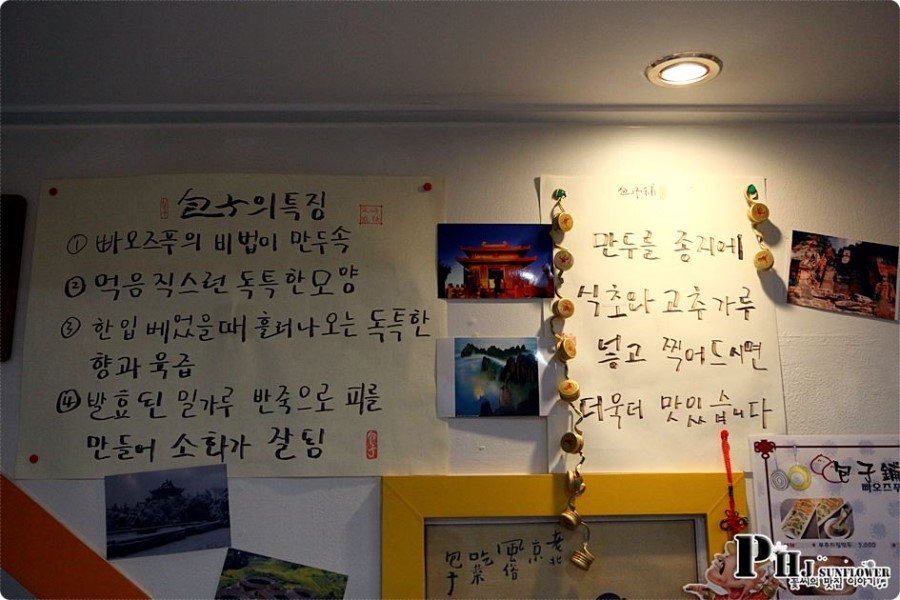 包子의 특징
① 빠오즈푸의 비법이 만두속
② 먹음직스런 독특한 모양
③ 한입 베었을때 흘러나오는 독특한
향과 육즙
④ 발효된 밀가루 반죽으로 피를
만들어 소화가 잘됨
包子鋪
만두를 종지에
식초와 고추가루
넣고 찍어드시면
더욱더 맛있습니다
包子鋪
빠오즈푸
包子
吃菜
風俗
京
PHJ SUNFLOWER
꽃씨의 맛집 이야기